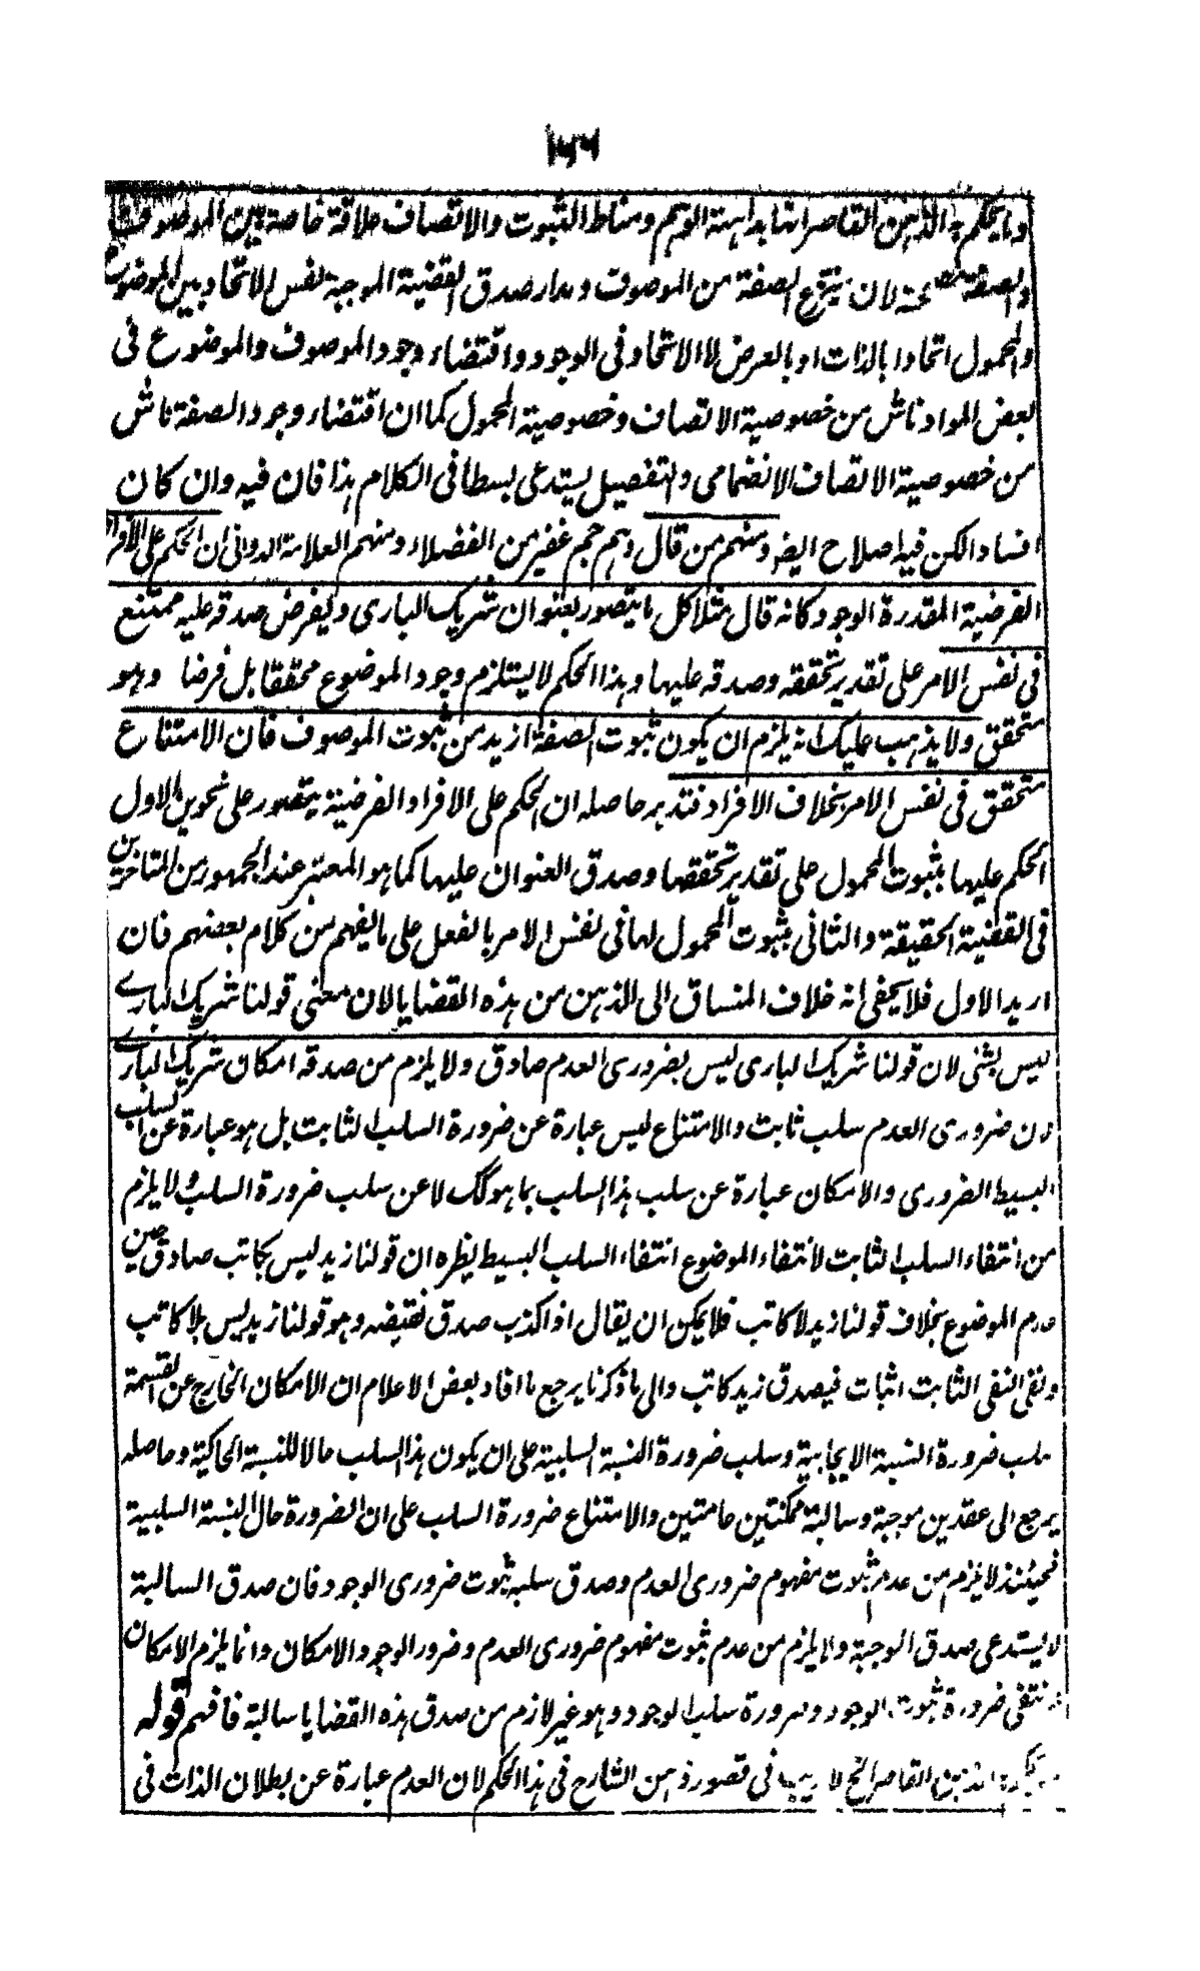 ١٥٦
وما يحكم به الذهن القاصر انها بداهته الوهم ومناط الثبوت والاتصاف علاقة خاصة بين الموصوف
والصفة مصححة لان ينتزع الصفة من الموصوف ومدار صدق القضية الموجبة نفس الاتحاد بين الموضوع
والمحمول اتحادا بالذات او بالعرض لا الاتحاد فى الوجود واقتضاء وجود الموصوف والموضوع فى
بعض المواد ناش من خصوصية الاتصاف وخصوصية المحمول كما ان اقتضاء وجود الصفة ناش
من خصوصية الاتصاف الانضمامى والتفصيل يستدعى بسطا فى الكلام هذا فان فيه وان كان
افسادا لكن فيه اصلاح ايضا ومنهم من قال وهم جم غفير من الفضلاء ومنهم العلامة الدوانى ان الحكم على الافراد
الفرضية المقدرة الوجود كانه قال مثلا كل ما يتصور بعنوان شريك البارى ويفرض صدقه عليه ممتنع
فى نفس الامر على تقدير تحققه وصدقه عليها وهذا الحكم لا يستلزم وجود الموضوع محققا بل فرضا وهو
متحقق ولا يذهب عليك انه يلزم ان يكون ثبوت الصفة ازيد من ثبوت الموصوف فان الامتناع
متحقق فى نفس الامر بخلاف الافراد فتدبر حاصله ان الحكم على الافراد الفرضية يتصور على نحوين الاول
الحكم عليها بثبوت المحمول على تقدير تحققها وصدق العنوان عليها كما هو المعتبر عند الجمهور من المتاخرين
فى القضية الحقيقة والثانى بثبوت المحمول لها فى نفس الامر بالفعل على ما يفهم من كلام بعضهم فان
اريد الاول فلا يخفى انه خلاف المنساق الى الذهن من هذه القضايا لان معنى قولنا شريك البارے
ليس بشئى لان قولنا شريك البارى ليس بضرورى العدم صادق ولا يلزم من صدقه امكان شريك البارے
لان ضرورى العدم سلب ثابت والامتناع ليس عبارة عن ضرورة السلب الثابت بل هو عبارة عن السلب
البسيط الضرورى والامكان عبارة عن سلب هذا السلب بما هو كك لا عن سلب ضرورة السلب ولا يلزم
من انتفاء السلب الثابت لانتفاء الموضوع انتفاء السلب البسيط نظره ان قولنا زيد ليس بكاتب صادق حين
عدم الموضوع بخلاف قولنا زيد لا كاتب فلا يمكن ان يقال اذا كذب صدق نقيضه وهو قولنا زيد ليس بلا كاتب
ونفى النفى الثابت اثبات فيصدق زيد كاتب والى ما ذكرنا يرجع ما افاد بعض الاعلام ان الامكان الخارج عن القسمة
سلب ضرورة النسبة الايجابية وسلب ضرورة النسبة السلبية على ان يكون هذا السلب حالا للنسبة الحاكية وحاصله
يرجع الى عقدين موجبة وسالبة ممكنتين عامتين والامتناع ضرورة السلب على ان الضرورة حال النسبة السلبية
فحينئذ لا يلزم من عدم ثبوت مفهوم ضرورى العدم وصدق سلبه ثبوت ضرورى الوجود فان صدق السالبة
لا يستدعى صدق الموجبة ولا يلزم من عدم ثبوت مفهوم ضرورى العدم وضرور الوجود الامكان وانما يلزم الامكان
انتفى ضرورة ثبوت الوجود وضرورة سلب الوجود وهو غير لازم من صدق هذه القضايا سالبة فافهم قوله
الذهن القاصر الخ لا ريب فى قصور ذهن الشارح فى هذا الحكم لان العدم عبارة عن بطلان الذات فى